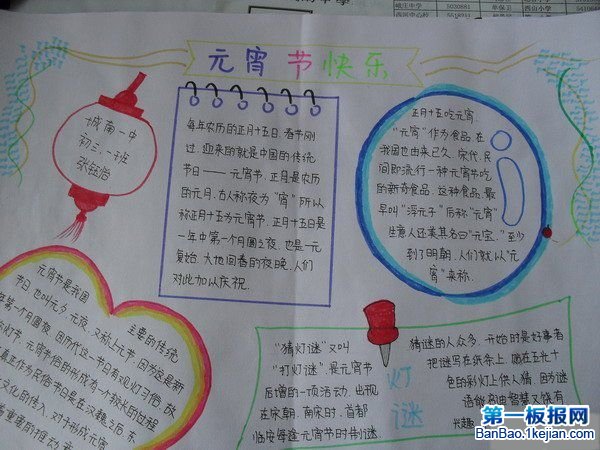 元宵节快乐
城南一中
初三·一班
每年农历的正月十五日,春节刚
过,迎来的就是中国的传统
节日——元宵节,正月是农历
的元月,古人称夜为"宵"所以
称正月十五为元宵节,正月十五日是
一年中第一个月圆之夜,也是一元
复始,大地回春的夜晚,人们
对此加以庆祝.
正月十五吃元宵
"元宵"作为食品,在
我国也由来已久,宋代,民
间即流行一种元宵节吃
的新奇食品,这种食品,最
早叫"浮元子"后称"元宵"
生意人还美其名曰"元宝."至少
到了明朝,人们就以"元
宵"来称.
元宵节是我国 主要的传统
节日,也叫元夕,元夜,又称上元节,因为这是新
年第一个月圆夜,因历代这一节日有观灯习俗,故
灯节,元宵节俗的形成为一个较长的过程
真正作为民俗节日是在汉魏之后,东
文化的传入,对于形成元宵
重要的推动
"猜灯谜"又叫
"打灯谜",是元宵节
后增的一项活动,出现
在宋朝,南宋时,首都
临安每逢元宵节时制谜,
灯
谜
猜谜的人众多,开始时是好事者
把谜写在纸条上,贴在五光十
色的彩灯上供人猜,因为谜
语能启迪智慧又饶有
兴趣
第一板报网
BanBao.1kejian.com